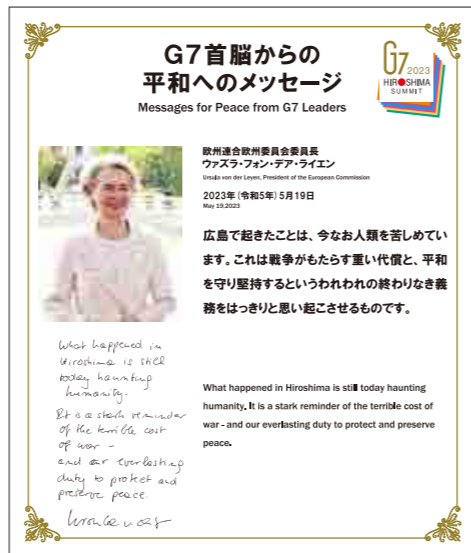 G7首脳からの
平和へのメッセージ
Messages for Peace from G7 Leaders
G7 2023
HIROSHIMA
SUMMIT
欧州連合欧州委員会委員長
ウァズラ・フォン・デア・ライエン
Ursula von der Leyen, President of the European Commission
2023年(令和5年)5月19日
May 19,2023
広島で起きたことは、今なお人類を苦しめてい
ます。これは戦争がもたらす重い代償と、平和
を守り堅持するというわれわれの終わりなき義
務をはっきりと思い起こさせるものです。
What happened in
Hiroshima is still
today haunting
humanity.
It is a stark reminder
of the terrible cost
of war -
and our everlasting
duty to protect and
preserve peace.
What happened in Hiroshima is still today haunting
humanity. It is a stark reminder of the terrible cost of
war - and our everlasting duty to protect and preserve
peace.